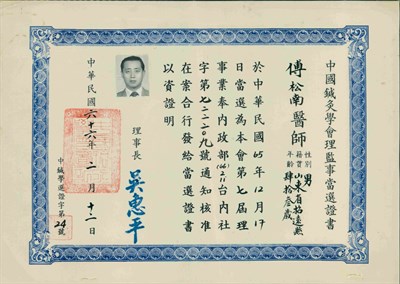 中國鍼灸學會理監事當選證書
傅松南醫師
性別 男
籍貫 山東省招遠縣
年齡 肆拾叁歲
於中華民國65年12月17
日當選為本會第七屆理
事業奉內政部(66)2.11台內社
字第七二二二0九號通知核准
在案合行發給當選證書
以資證明
理事長
吳惠平
中華民國六十六年二月十二日
中鍼學選證字第24號